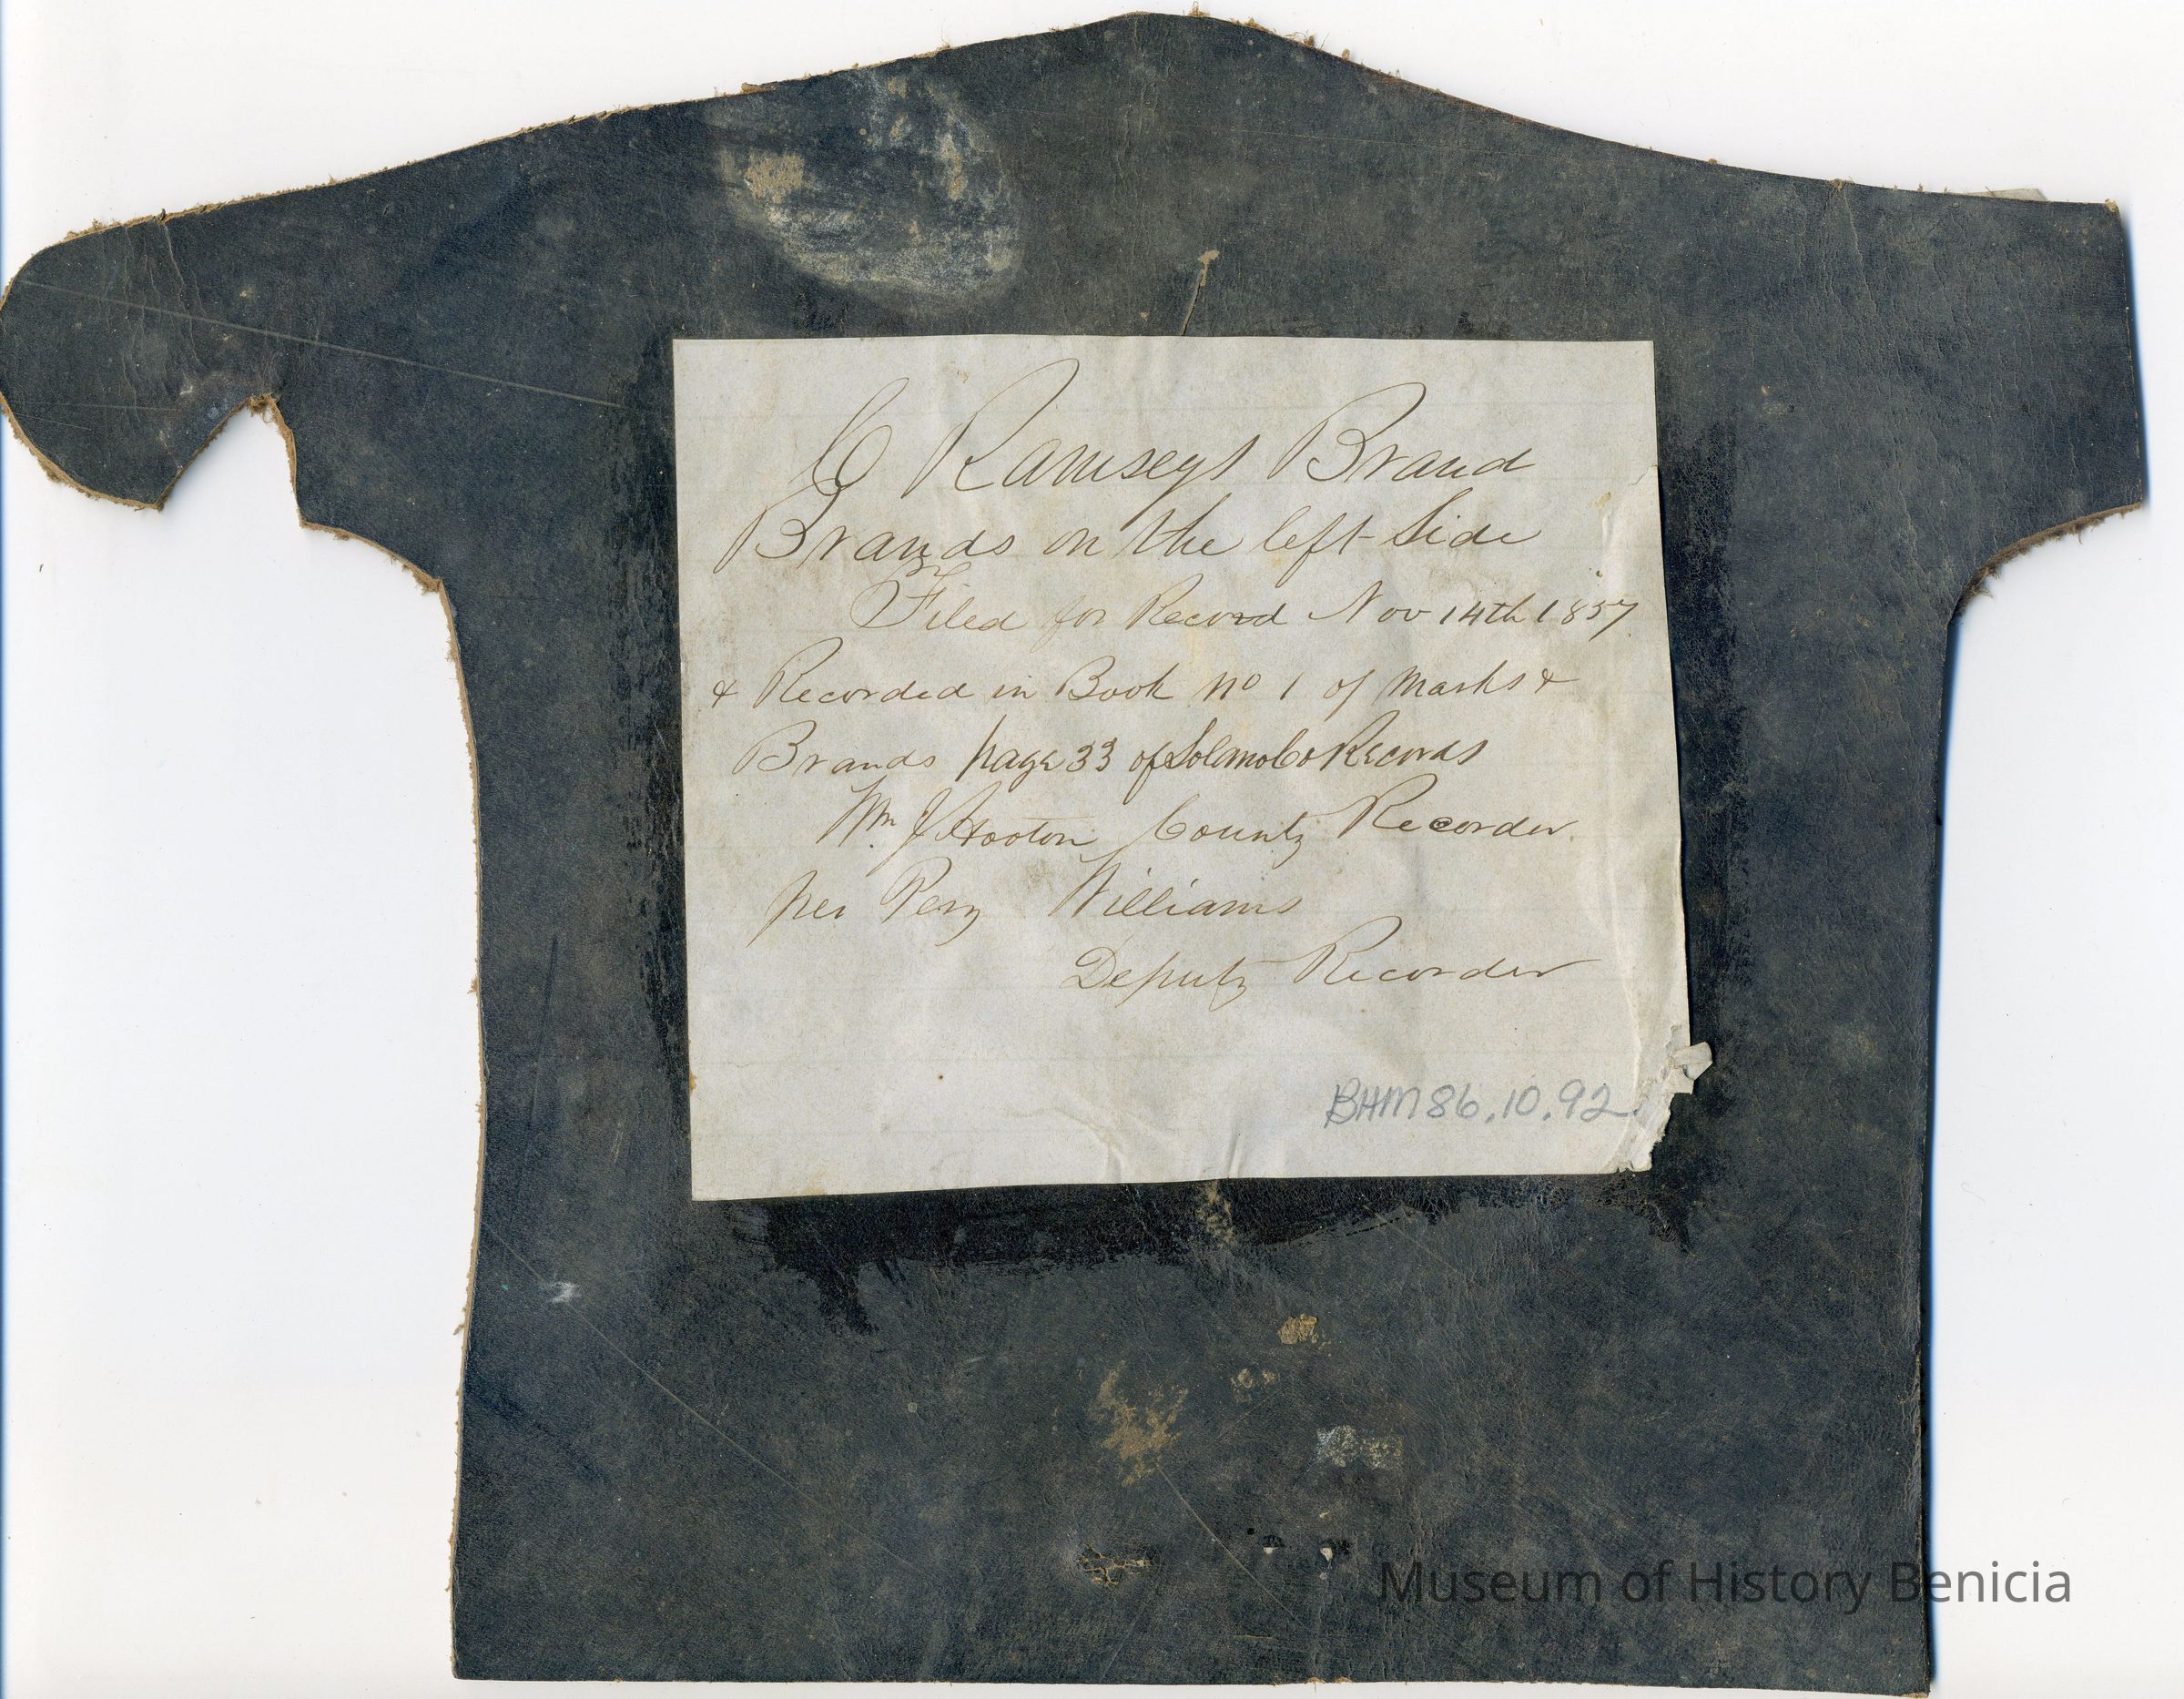 C Ramseys Brand
Brands on the left Side
Filed for Record Nov 14th 1857
& Recorded in Book No 1 of Marks &
Brands page 33 of Solano Co Records
Wm J Hooton County Recorder
per Perry Williams
Deputy Recorder
BHM 86.10.92
Museum of History Benicia